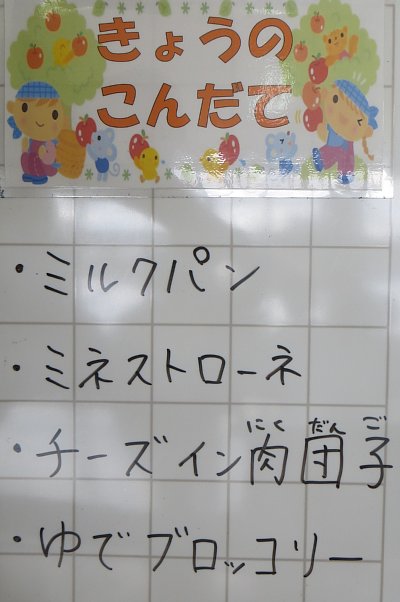 きょうの
こんだて
・ミルクパン
・ミネストローネ
にく だん ご
・チーズイン肉団子
・ゆでブロッコリー